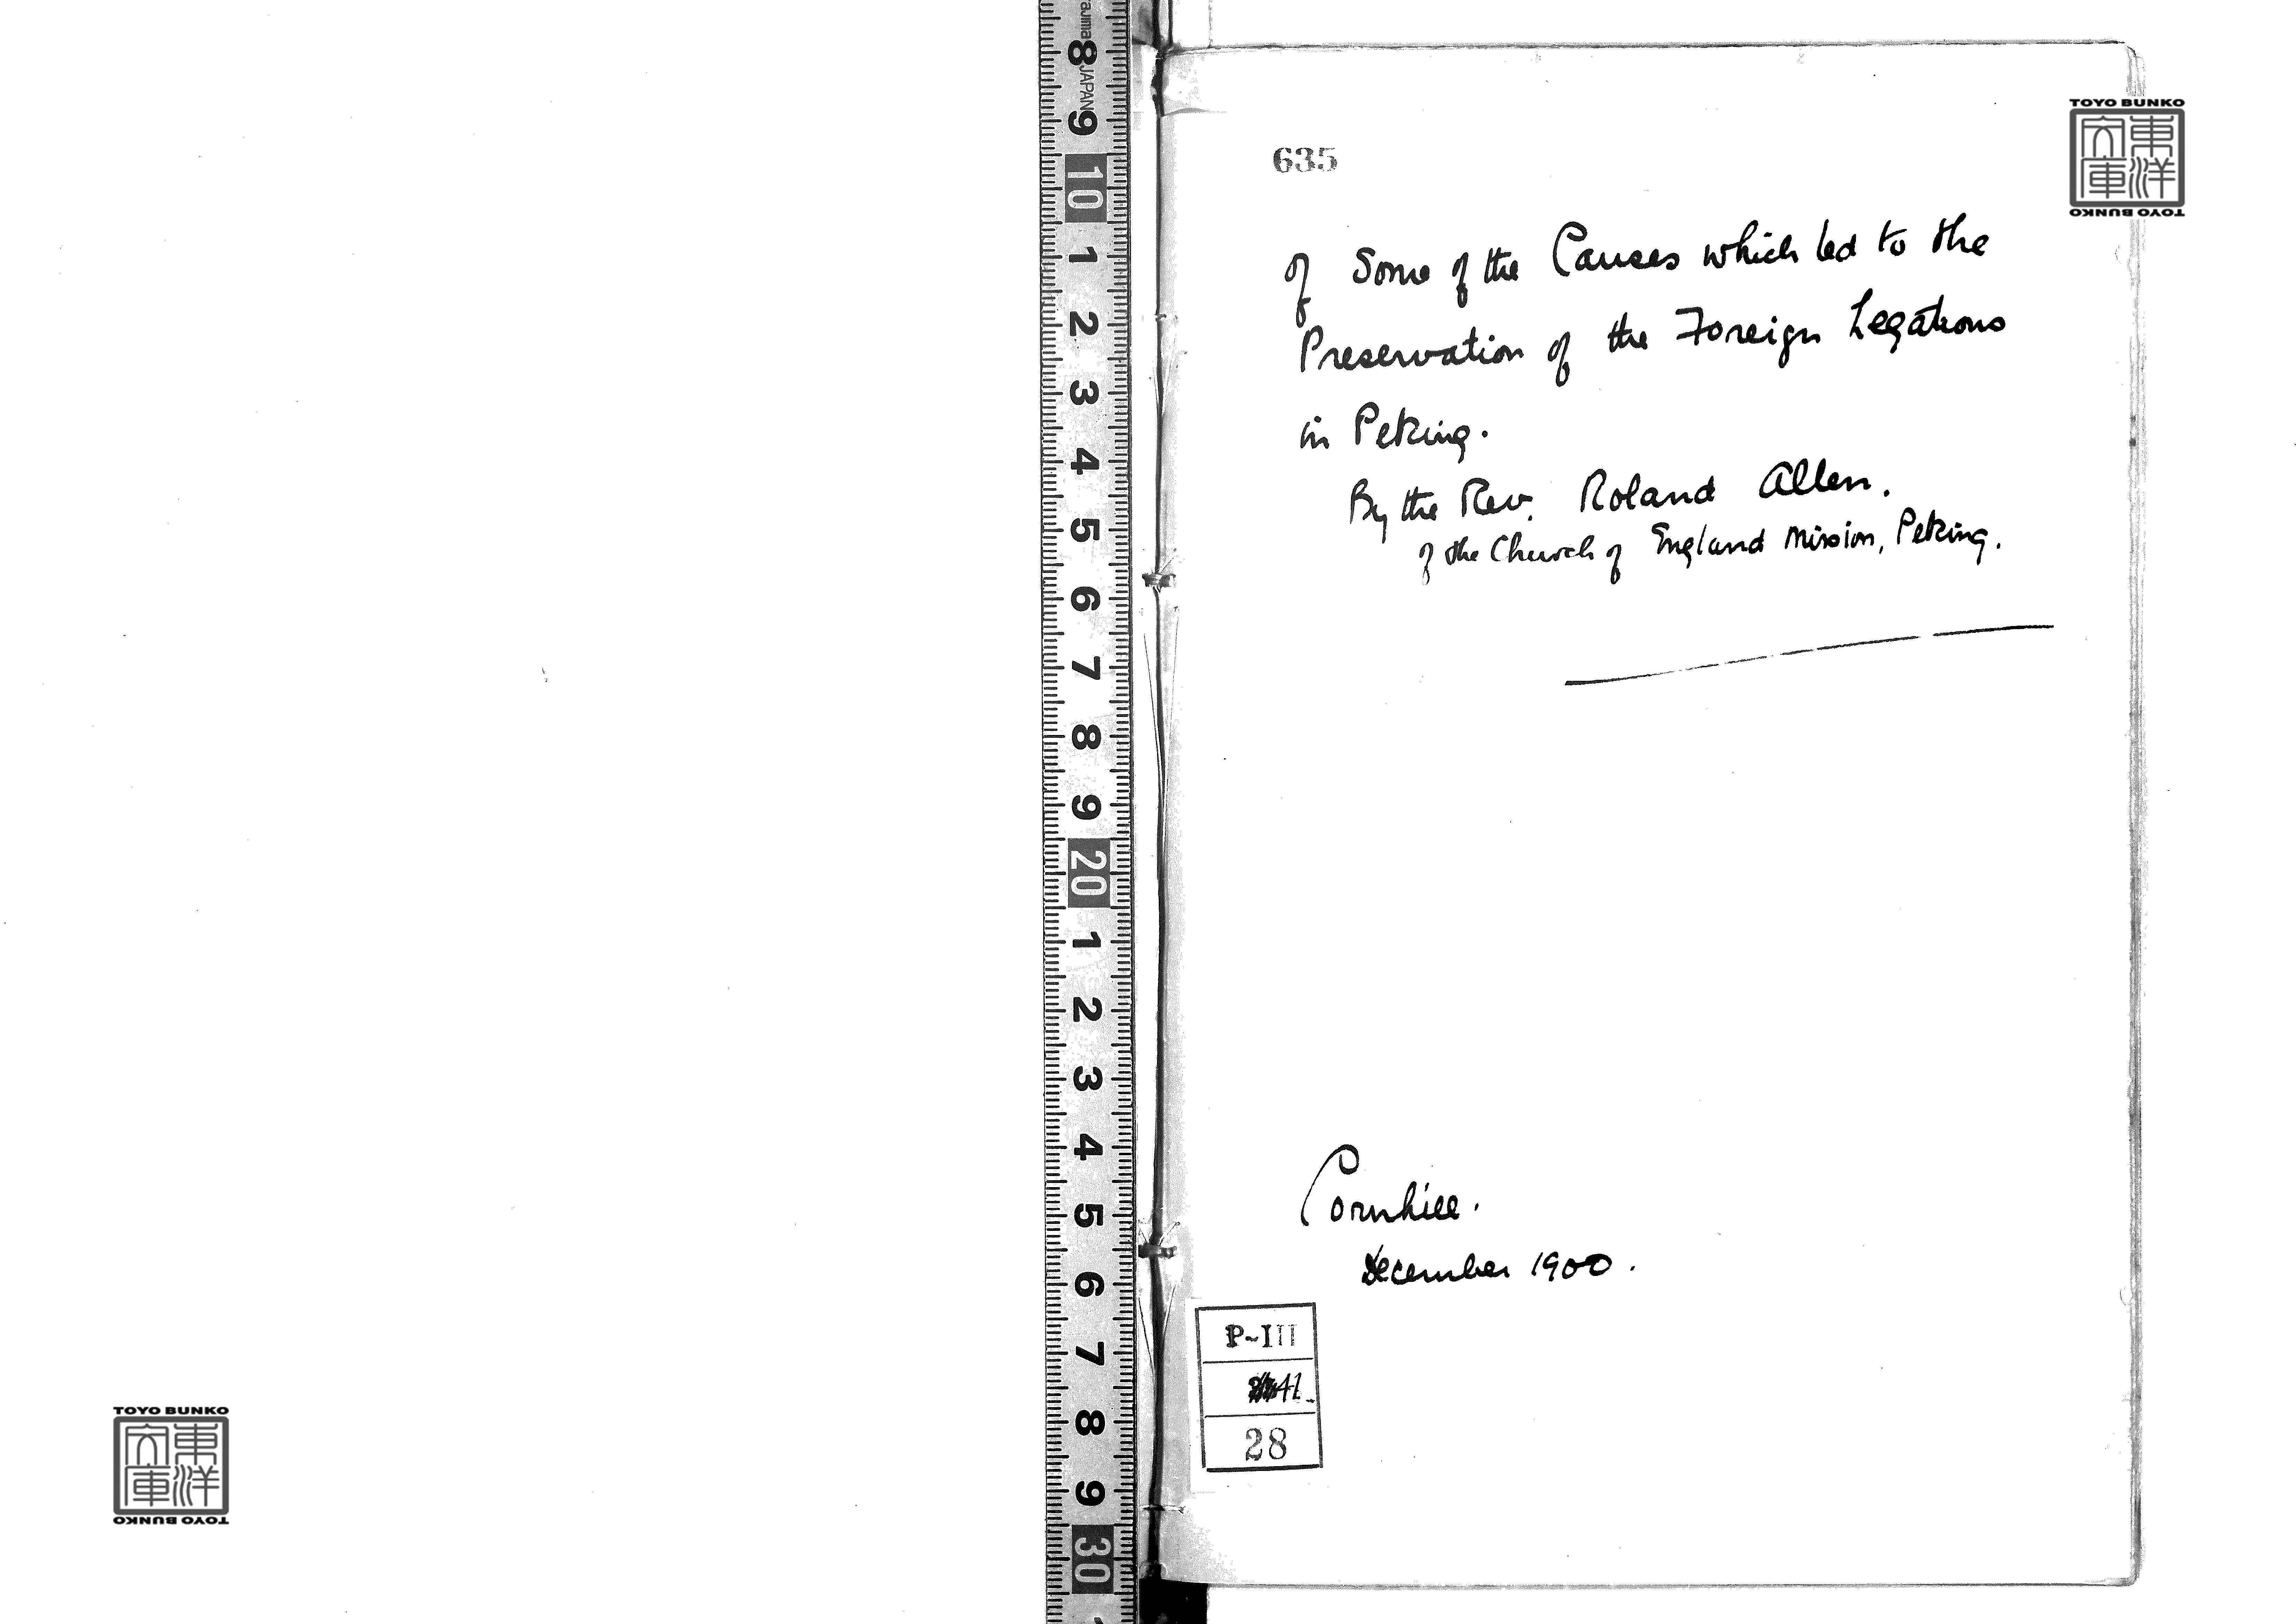 635
of Some of the Causes which led to the
Preservation of the Foreign Legations
in Peking.
By the Rev. Roland Allen.
of the Church of England Mission, Peking.
Cornhill.
December 1900.
P-III
41
28
TOYO BUNKO
東洋文庫
TOYO BUNKO
TOYO BUNKO
東洋文庫
TOYO BUNKO
JAPAN
8
9
10
1
2
3
4
5
6
7
8
9
20
1
2
3
4
5
6
7
8
9
30